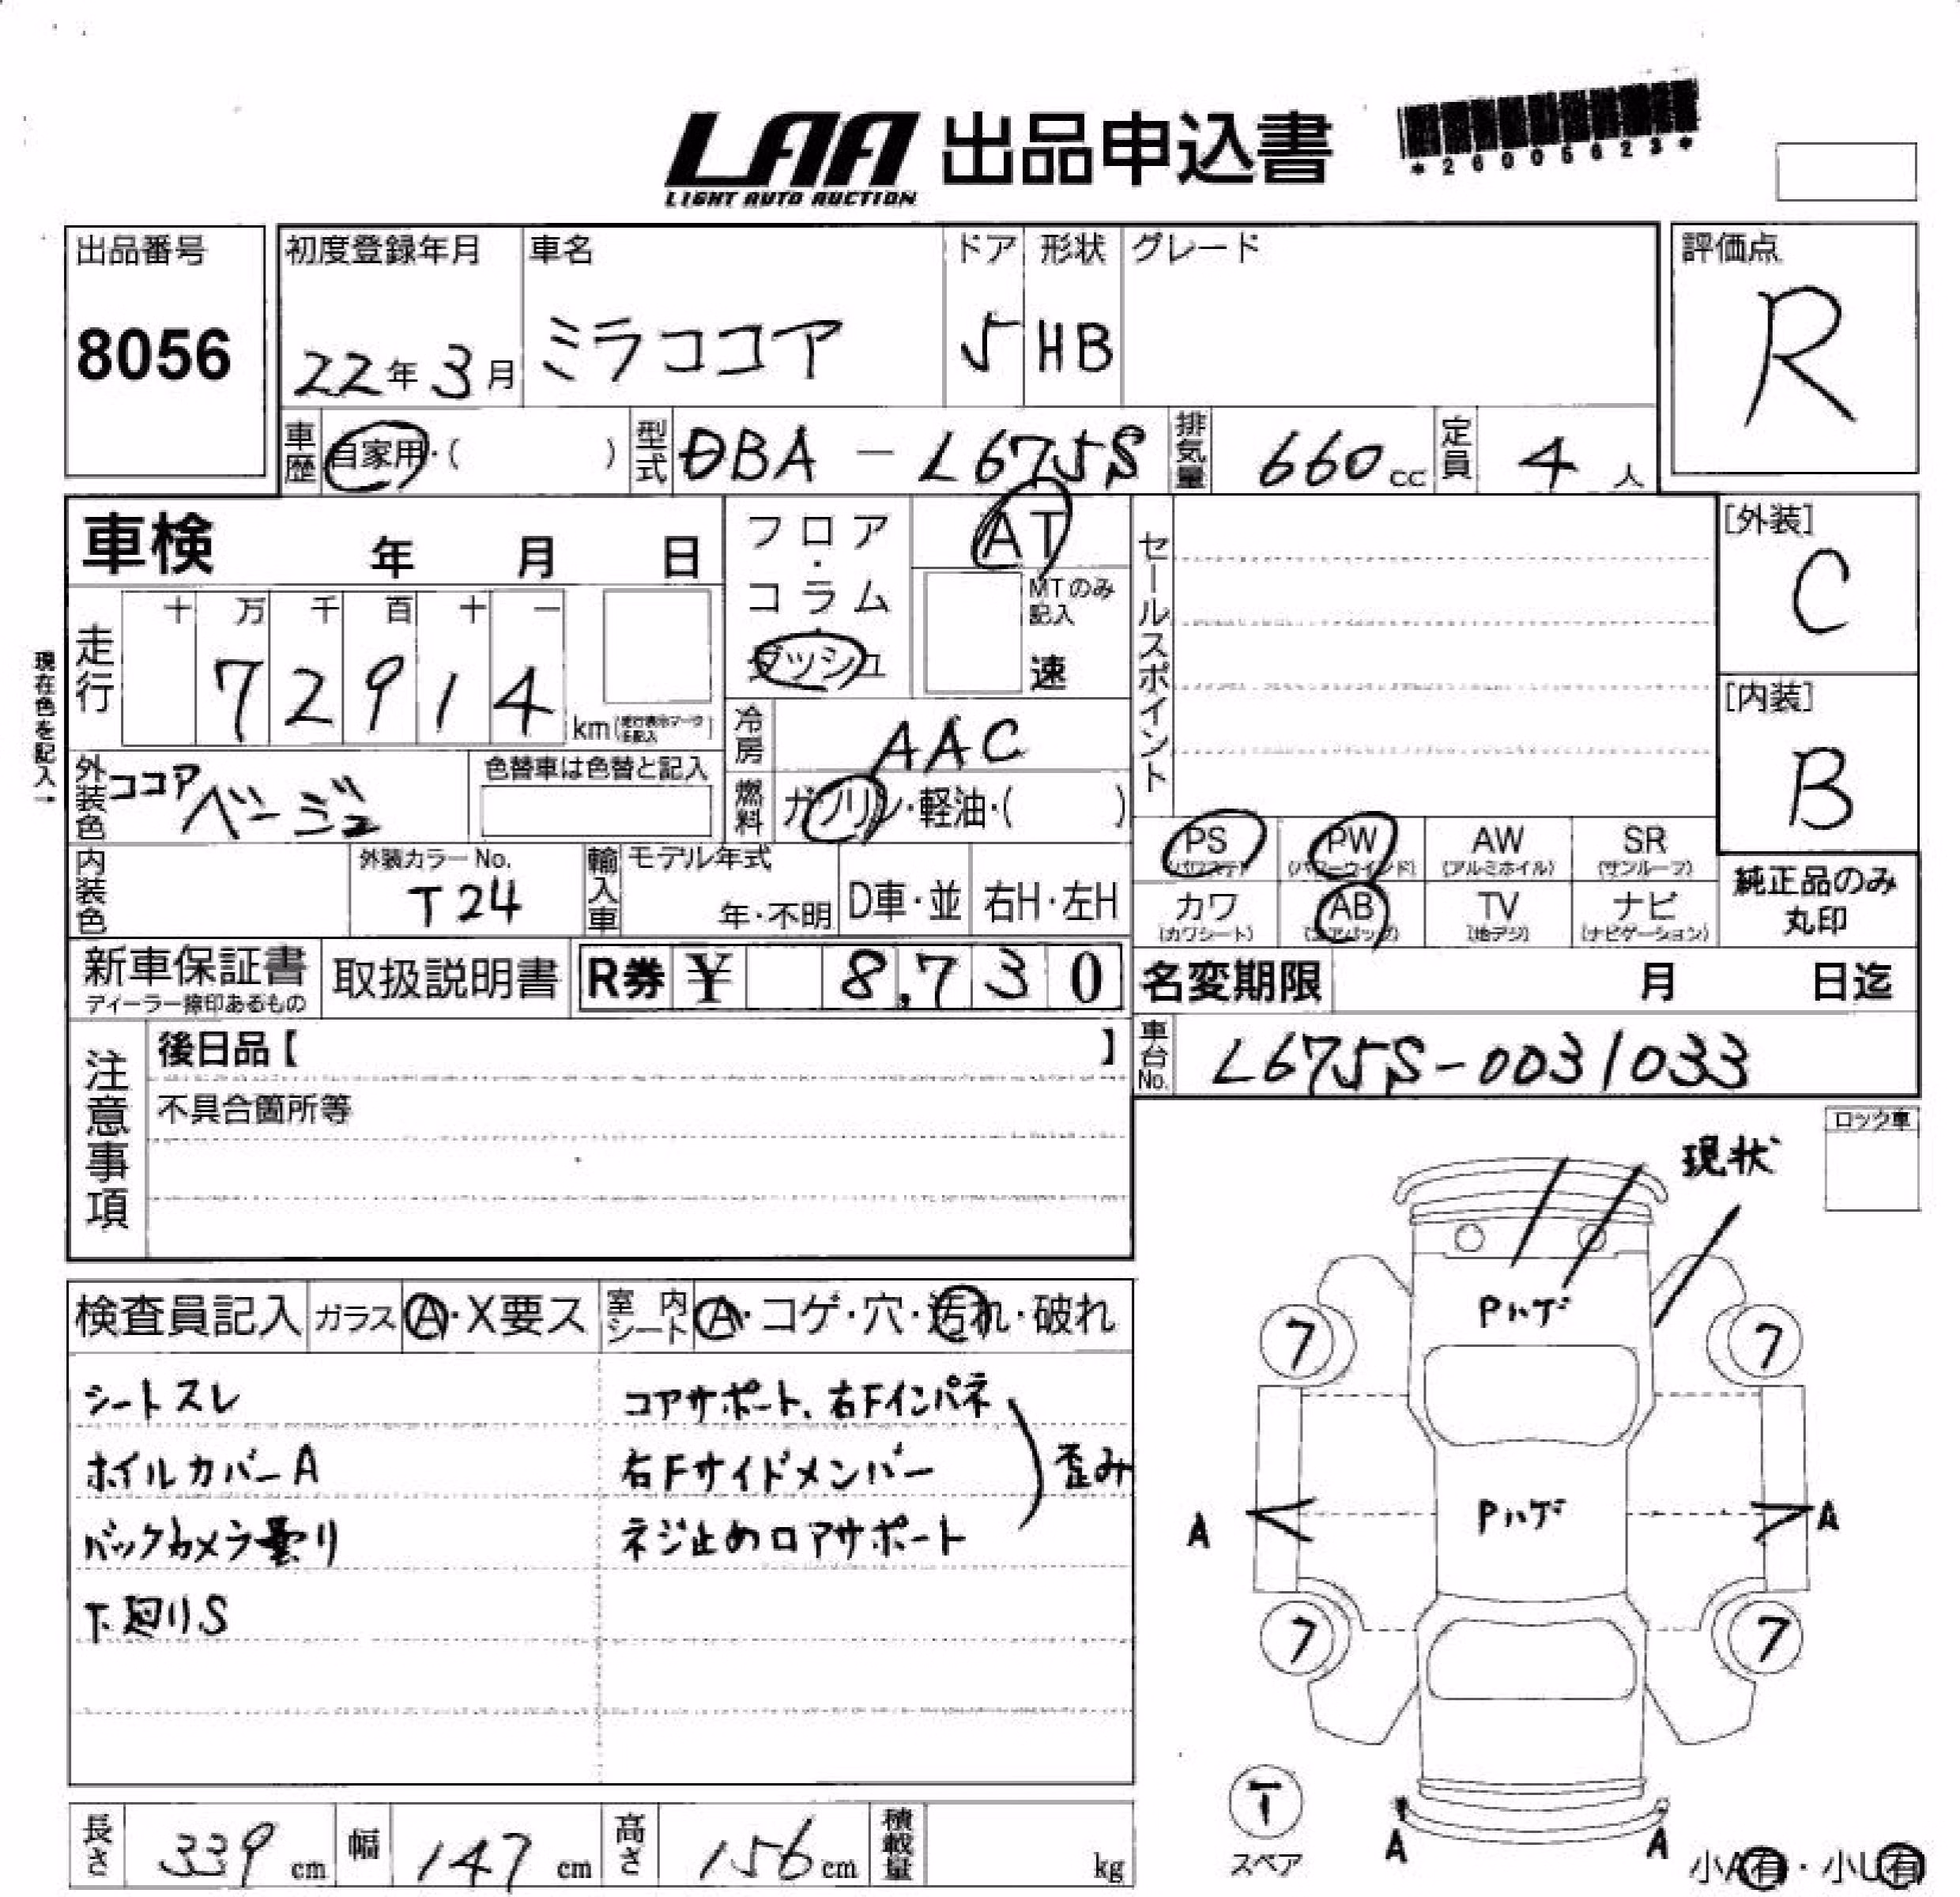 LAA 出品申込書
LIGHT AUTO AUCTION
*26005623*
出品番号
8056
初度登録年月
22年3月
車名
ミラココア
ドア
5
形状
HB
グレード
評価点
R
車歴
自家用・( )
型式
DBA-L675S
排気量
660cc
定員
4人
車検 年 月 日
フロア・コラム・ダッシュ
AT
MTのみ記入
速
セールスポイント
[外装]
C
[内装]
B
現在色を記入→
走行
十 万 千 百 十 一
72914
km(走行表示マークを記入)
冷房
AAC
外装色
ココア
ベージュ
色替車は色替と記入
燃料
ガソリン・軽油・( )
PS (パワステ)
PW (パワーウインド)
AW (アルミホイル)
SR (サンルーフ)
カワ (カワシート)
AB (エアバッグ)
TV (地デジ)
ナビ (ナビゲーション)
純正品のみ
丸印
内装色
外装カラーNo.
T24
輸入車
モデル年式
年・不明
D車・並
右H・左H
新車保証書
ディーラー捺印あるもの
取扱説明書
R券 ¥ 8,730
名変期限 月 日迄
車台No.
L675S-0031033
注意事項
後日品【 】
不具合箇所等
ロック車
現状
検査員記入
ガラス
A・X要ス
室内シート
A・コゲ・穴・汚れ・破れ
シートスレ
ホイルカバーA
バックカメラ曇り
下廻りS
コアサポート、右Fインパネ
右Fサイドメンバー
ネジ止めロアサポート
歪み
Pハゲ
7 7
Pハゲ
A A
7 7
T
スペア
A A
小A有・小U有
長さ 339cm
幅 147cm
高さ 156cm
積載量 kg